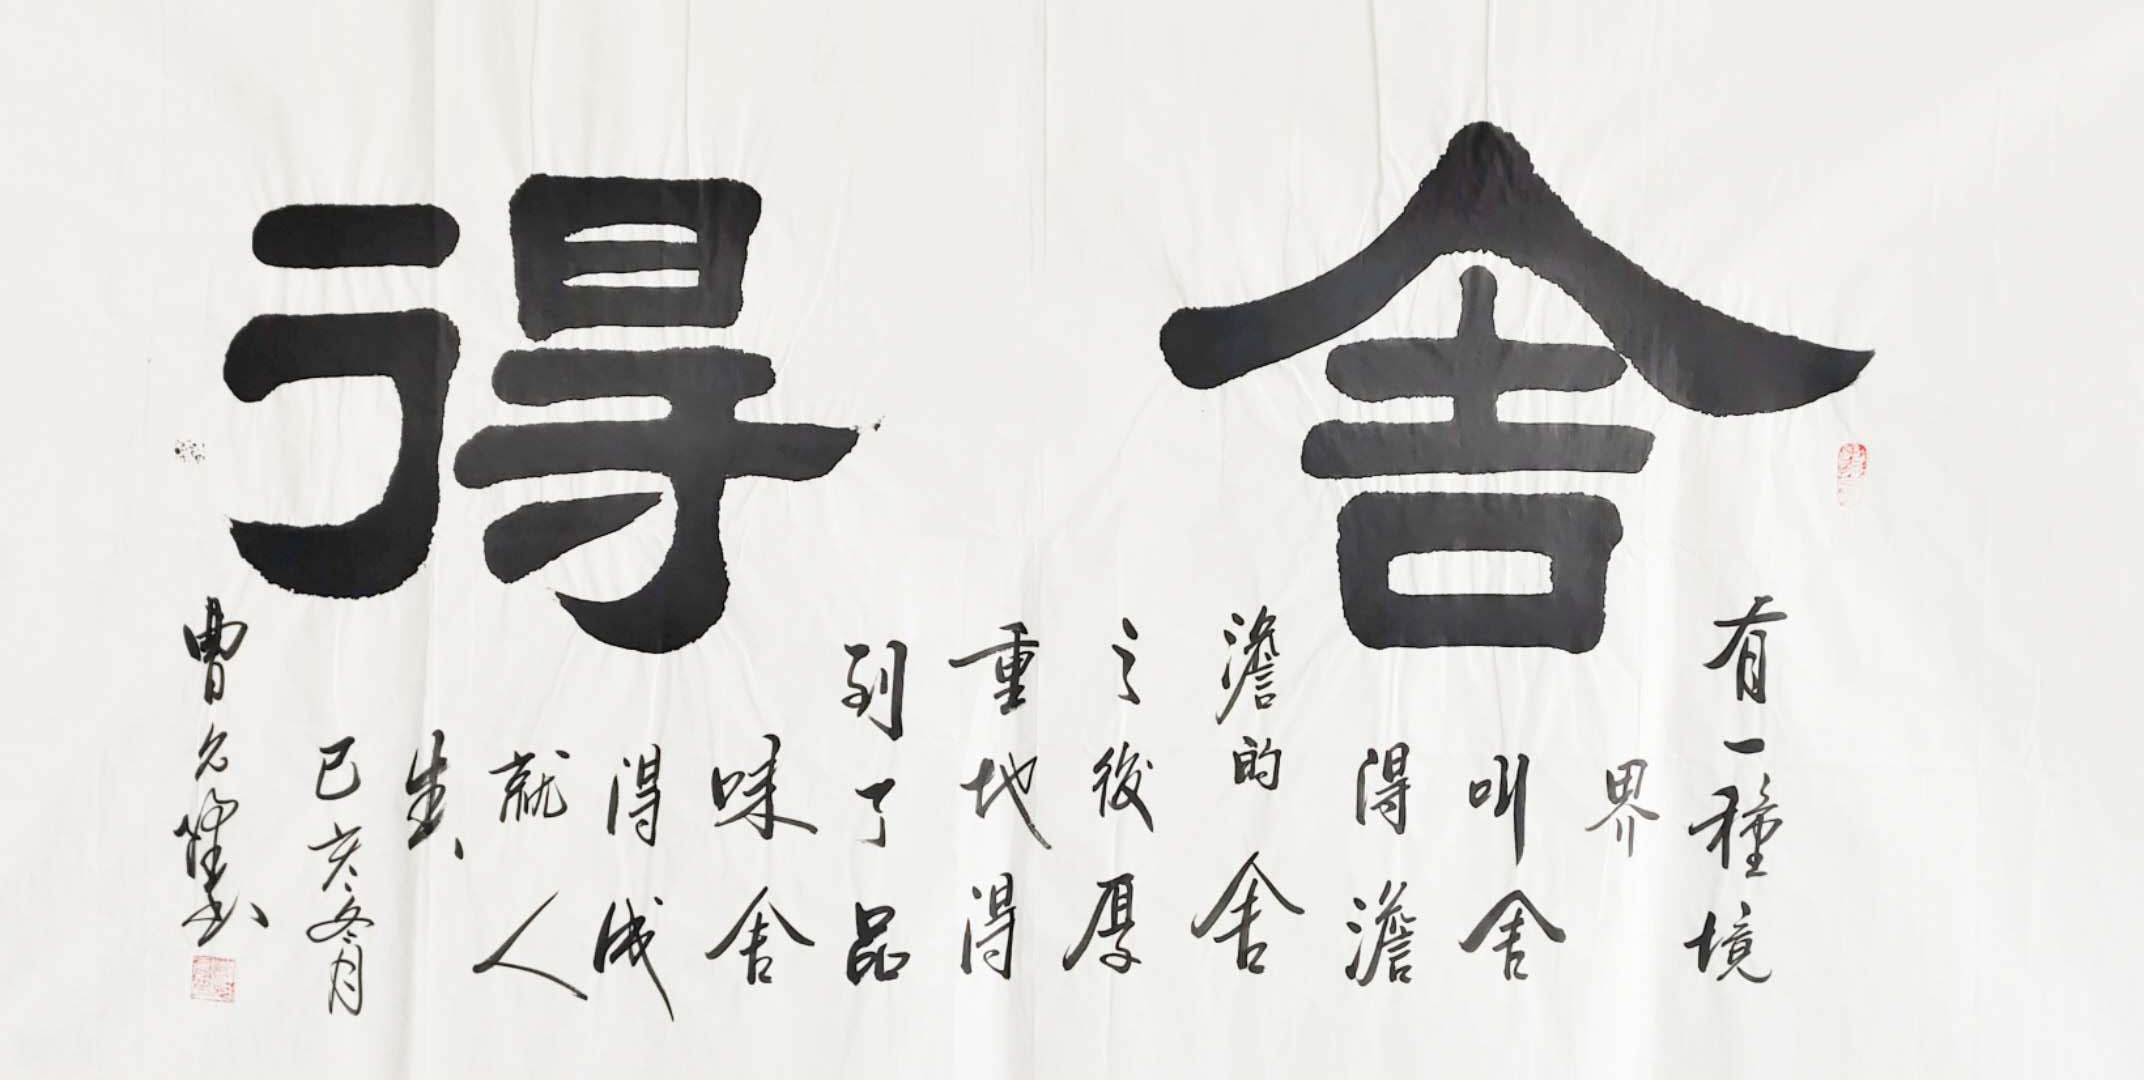 舍得
有一種境
界
叫舍
得澹
澹的舍
之後厚
重地得
到了品
味舍
得成
就人
生
己亥冬月
曹